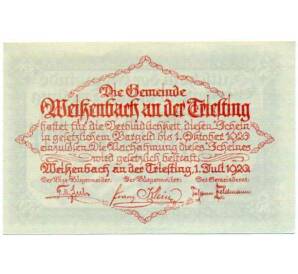 Die Gemeinde
Weißenbach an der Triesting
haftet für die Verbindlichkeit diesen Schein
in gesetzlichem Bargeld bis 1. Oktober 1920
einzulösen. Die Nachahmung dieses Scheines
wird gesetzlich bestraft.
Weißenbach an der Triesting, 1. Juli 1920.
Der Vize-Bürgermeister: Der Bürgermeister: Der Gemeinderat:
Franz Klein Johann Feldmann